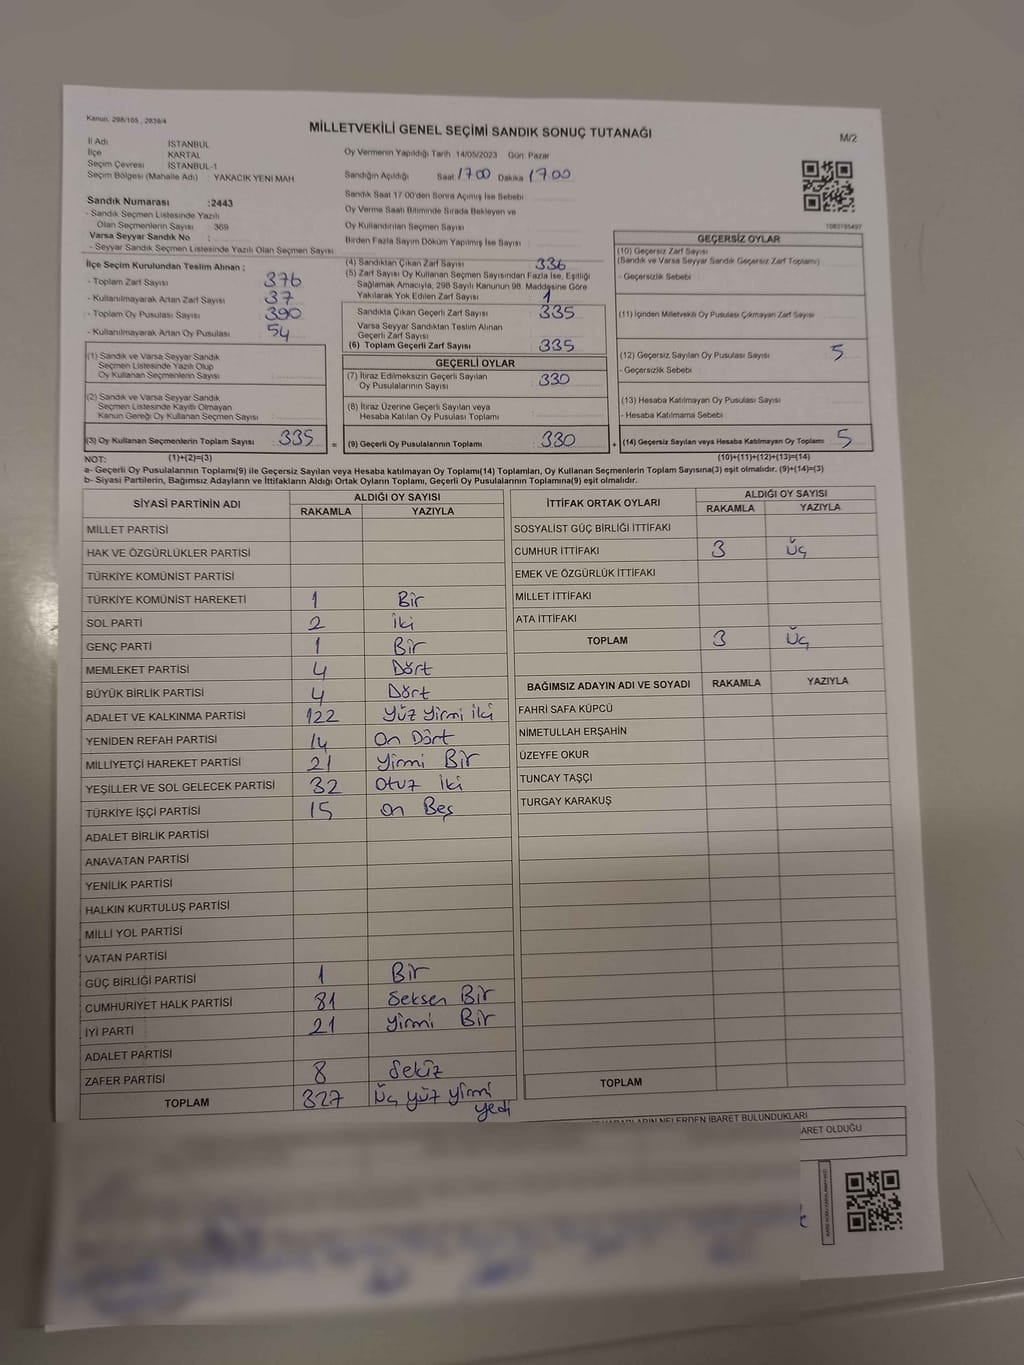 Kanun. 298/105 , 2839/4
MİLLETVEKİLİ GENEL SEÇİMİ SANDIK SONUÇ TUTANAĞI
M/2
İl Adı : İSTANBUL
İlçe : KARTAL
Seçim Çevresi : İSTANBUL-1
Seçim Bölgesi (Mahalle Adı) : YAKACIK YENİ MAH
Sandık Numarası :2443
- Sandık Seçmen Listesinde Yazılı
Olan Seçmenlerin Sayısı 369
Varsa Seyyar Sandık No :
- Seyyar Sandık Seçmen Listesinde Yazılı Olan Seçmen Sayısı
Oy Vermenin Yapıldığı Tarih 14/05/2023 Gün Pazar
Sandığın Açıldığı Saat 17.00 Dakika 17.00
Sandık Saat 17 00'den Sonra Açılmış İse Sebebi
Oy Verme Saati Bitiminde Sırada Bekleyen ve
Oy Kullandırılan Seçmen Sayısı
Birden Fazla Sayım Döküm Yapılmış İse Sayısı
İlçe Seçim Kurulundan Teslim Alınan ;
- Toplam Zarf Sayısı 376
- Kullanılmayarak Artan Zarf Sayısı 37
- Toplam Oy Pusulası Sayısı 390
- Kullanılmayarak Artan Oy Pusulası 54
(1) Sandık ve Varsa Seyyar Sandık
Seçmen Listesinde Yazılı Olup
Oy Kullanan Seçmenlerin Sayısı
(2) Sandık ve Varsa Seyyar Sandık
Seçmen Listesinde Kayıtlı Olmayan
Kanun Gereği Oy Kullanan Seçmen Sayısı
(3) Oy Kullanan Seçmenlerin Toplam Sayısı 335 =
(4) Sandıktan Çıkan Zarf Sayısı 336
(5) Zarf Sayısı Oy Kullanan Seçmen Sayısından Fazla İse, Eşitliği
Sağlamak Amacıyla, 298 Sayılı Kanunun 98. Maddesine Göre
Yakılarak Yok Edilen Zarf Sayısı 1
Sandıkta Çıkan Geçerli Zarf Sayısı 335
Varsa Seyyar Sandıktan Teslim Alınan
Geçerli Zarf Sayısı
(6) Toplam Geçerli Zarf Sayısı 335
GEÇERLİ OYLAR
(7) İtiraz Edilmeksizin Geçerli Sayılan
Oy Pusulalarının Sayısı 330
(8) İtiraz Üzerine Geçerli Sayılan veya
Hesaba Katılan Oy Pusulası Toplamı
(9) Geçerli Oy Pusulalarının Toplamı 330 +
1083785497
GEÇERSİZ OYLAR
(10) Geçersiz Zarf Sayısı
(Sandık ve Varsa Seyyar Sandık Geçersiz Zarf Toplamı)
- Geçersizlik Sebebi
(11) İçinden Milletvekili Oy Pusulası Çıkmayan Zarf Sayısı
(12) Geçersiz Sayılan Oy Pusulası Sayısı 5
- Geçersizlik Sebebi
(13) Hesaba Katılmayan Oy Pusulası Sayısı
- Hesaba Katılmama Sebebi
(14) Geçersiz Sayılan veya Hesaba Katılmayan Oy Toplamı 5
NOT: (1)+(2)=(3) (10)+(11)+(12)+(13)=(14)
a- Geçerli Oy Pusulalarının Toplamı(9) ile Geçersiz Sayılan veya Hesaba katılmayan Oy Toplamı(14) Toplamları, Oy Kullanan Seçmenlerin Toplam Sayısına(3) eşit olmalıdır. (9)+(14)=(3)
b- Siyasi Partilerin, Bağımsız Adayların ve İttifakların Aldığı Ortak Oyların Toplamı, Geçerli Oy Pusulalarının Toplamına(9) eşit olmalıdır.
SİYASİ PARTİNİN ADI ALDIĞI OY SAYISI
RAKAMLA YAZIYLA
MİLLET PARTİSİ
HAK VE ÖZGÜRLÜKLER PARTİSİ
TÜRKİYE KOMÜNİST PARTİSİ
TÜRKİYE KOMÜNİST HAREKETİ 1 Bir
SOL PARTİ 2 İki
GENÇ PARTİ 1 Bir
MEMLEKET PARTİSİ 4 Dört
BÜYÜK BİRLİK PARTİSİ 4 Dört
ADALET VE KALKINMA PARTİSİ 122 Yüz Yirmi iki
YENİDEN REFAH PARTİSİ 14 On Dört
MİLLİYETÇİ HAREKET PARTİSİ 21 Yirmi Bir
YEŞİLLER VE SOL GELECEK PARTİSİ 32 Otuz iki
TÜRKİYE İŞÇİ PARTİSİ 15 on Beş
ADALET BİRLİK PARTİSİ
ANAVATAN PARTİSİ
YENİLİK PARTİSİ
HALKIN KURTULUŞ PARTİSİ
MİLLİ YOL PARTİSİ
VATAN PARTİSİ
GÜÇ BİRLİĞİ PARTİSİ 1 Bir
CUMHURİYET HALK PARTİSİ 81 Seksen Bir
İYİ PARTİ 21 Yirmi Bir
ADALET PARTİSİ
ZAFER PARTİSİ 8 Sekiz
TOPLAM 327 Üç yüz yirmi
yedi
İTTİFAK ORTAK OYLARI ALDIĞI OY SAYISI
RAKAMLA YAZIYLA
SOSYALİST GÜÇ BİRLİĞİ İTTİFAKI
CUMHUR İTTİFAKI 3 Üç
EMEK VE ÖZGÜRLÜK İTTİFAKI
MİLLET İTTİFAKI
ATA İTTİFAKI
TOPLAM 3 Üç
BAĞIMSIZ ADAYIN ADI VE SOYADI RAKAMLA YAZIYLA
FAHRİ SAFA KÜPCÜ
NİMETULLAH ERŞAHİN
ÜZEYFE OKUR
TUNCAY TAŞÇI
TURGAY KARAKUŞ
TOPLAM
NELERDEN İBARET BULUNDUKLARI
ARET OLDUĞU